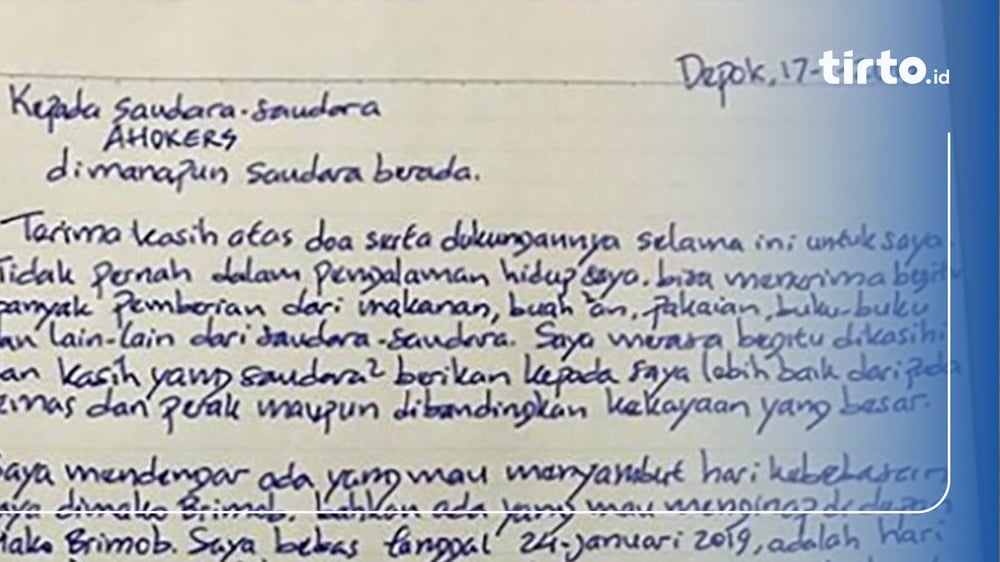 Depok, 17-
tirto.id
Kepada saudara-saudara
AHOKERS
dimanapun saudara berada.
Terima kasih atas doa serta dukungannya selama ini untuk saya.
Tidak pernah dalam pengalaman hidup saya. bisa menerima begitu
banyak pemberian dari makanan, buah²an, pakaian, buku-buku
dan lain-lain dari saudara-saudara. Saya merasa begitu dikasihi
dan kasih yang saudara² berikan kepada saya lebih baik daripada
emas dan perak maupun dibandingkan kekayaan yang besar.
Saya mendengar ada yang mau menyambut hari kebebasan
saya dimako Brimob. bahkan ada yang mau menginap di depan
Mako Brimob. Saya bebas tanggal 24-januari 2019, adalah hari